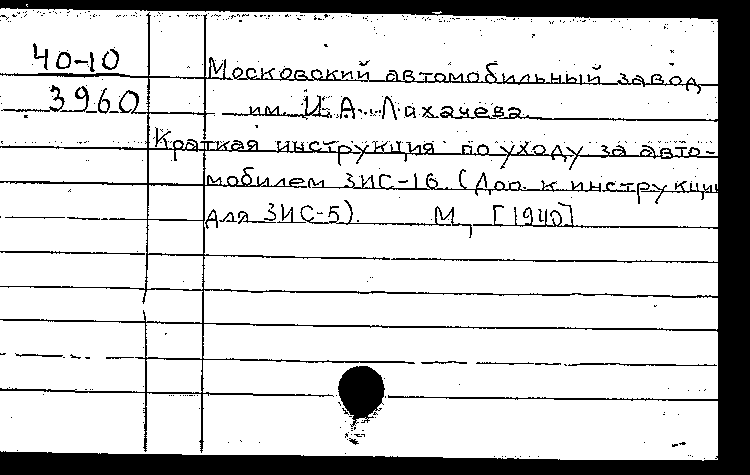 40-10
3960
Московский автомобильный завод
им. И.А. Лихачева.
Краткая инструкция по уходу за авто-
мобилем ЗИС-16. (Доп. к инструкции
для ЗИС-5). М., [1940]